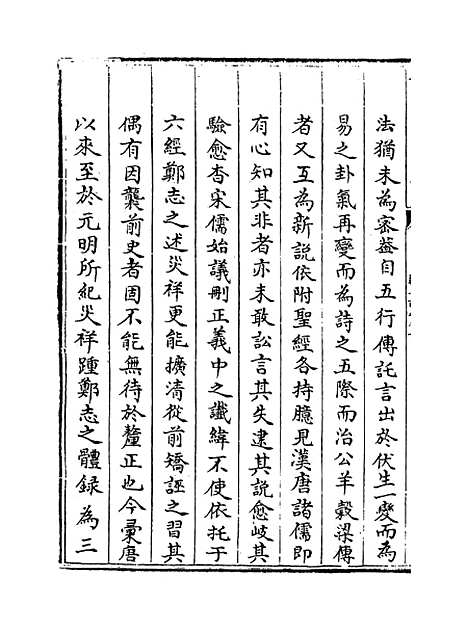 法猶未為密蓋自五行傳託言出於伏生一變而為
易之卦氣再變而為詩之五際而治公羊穀梁傳
者又互為新説依附聖經各持臆見漢唐諸儒即
有心知其非者亦未敢訟言其失逮其説愈岐其
驗愈杳宋儒始議刪正義中之讖緯不使依托于
六經鄭志之述災祥更能擴清從前矯誣之習其
偶有因襲前史者固不能無待於釐正也今彚唐
以來至於元明所紀災祥踵鄭志之體録為三